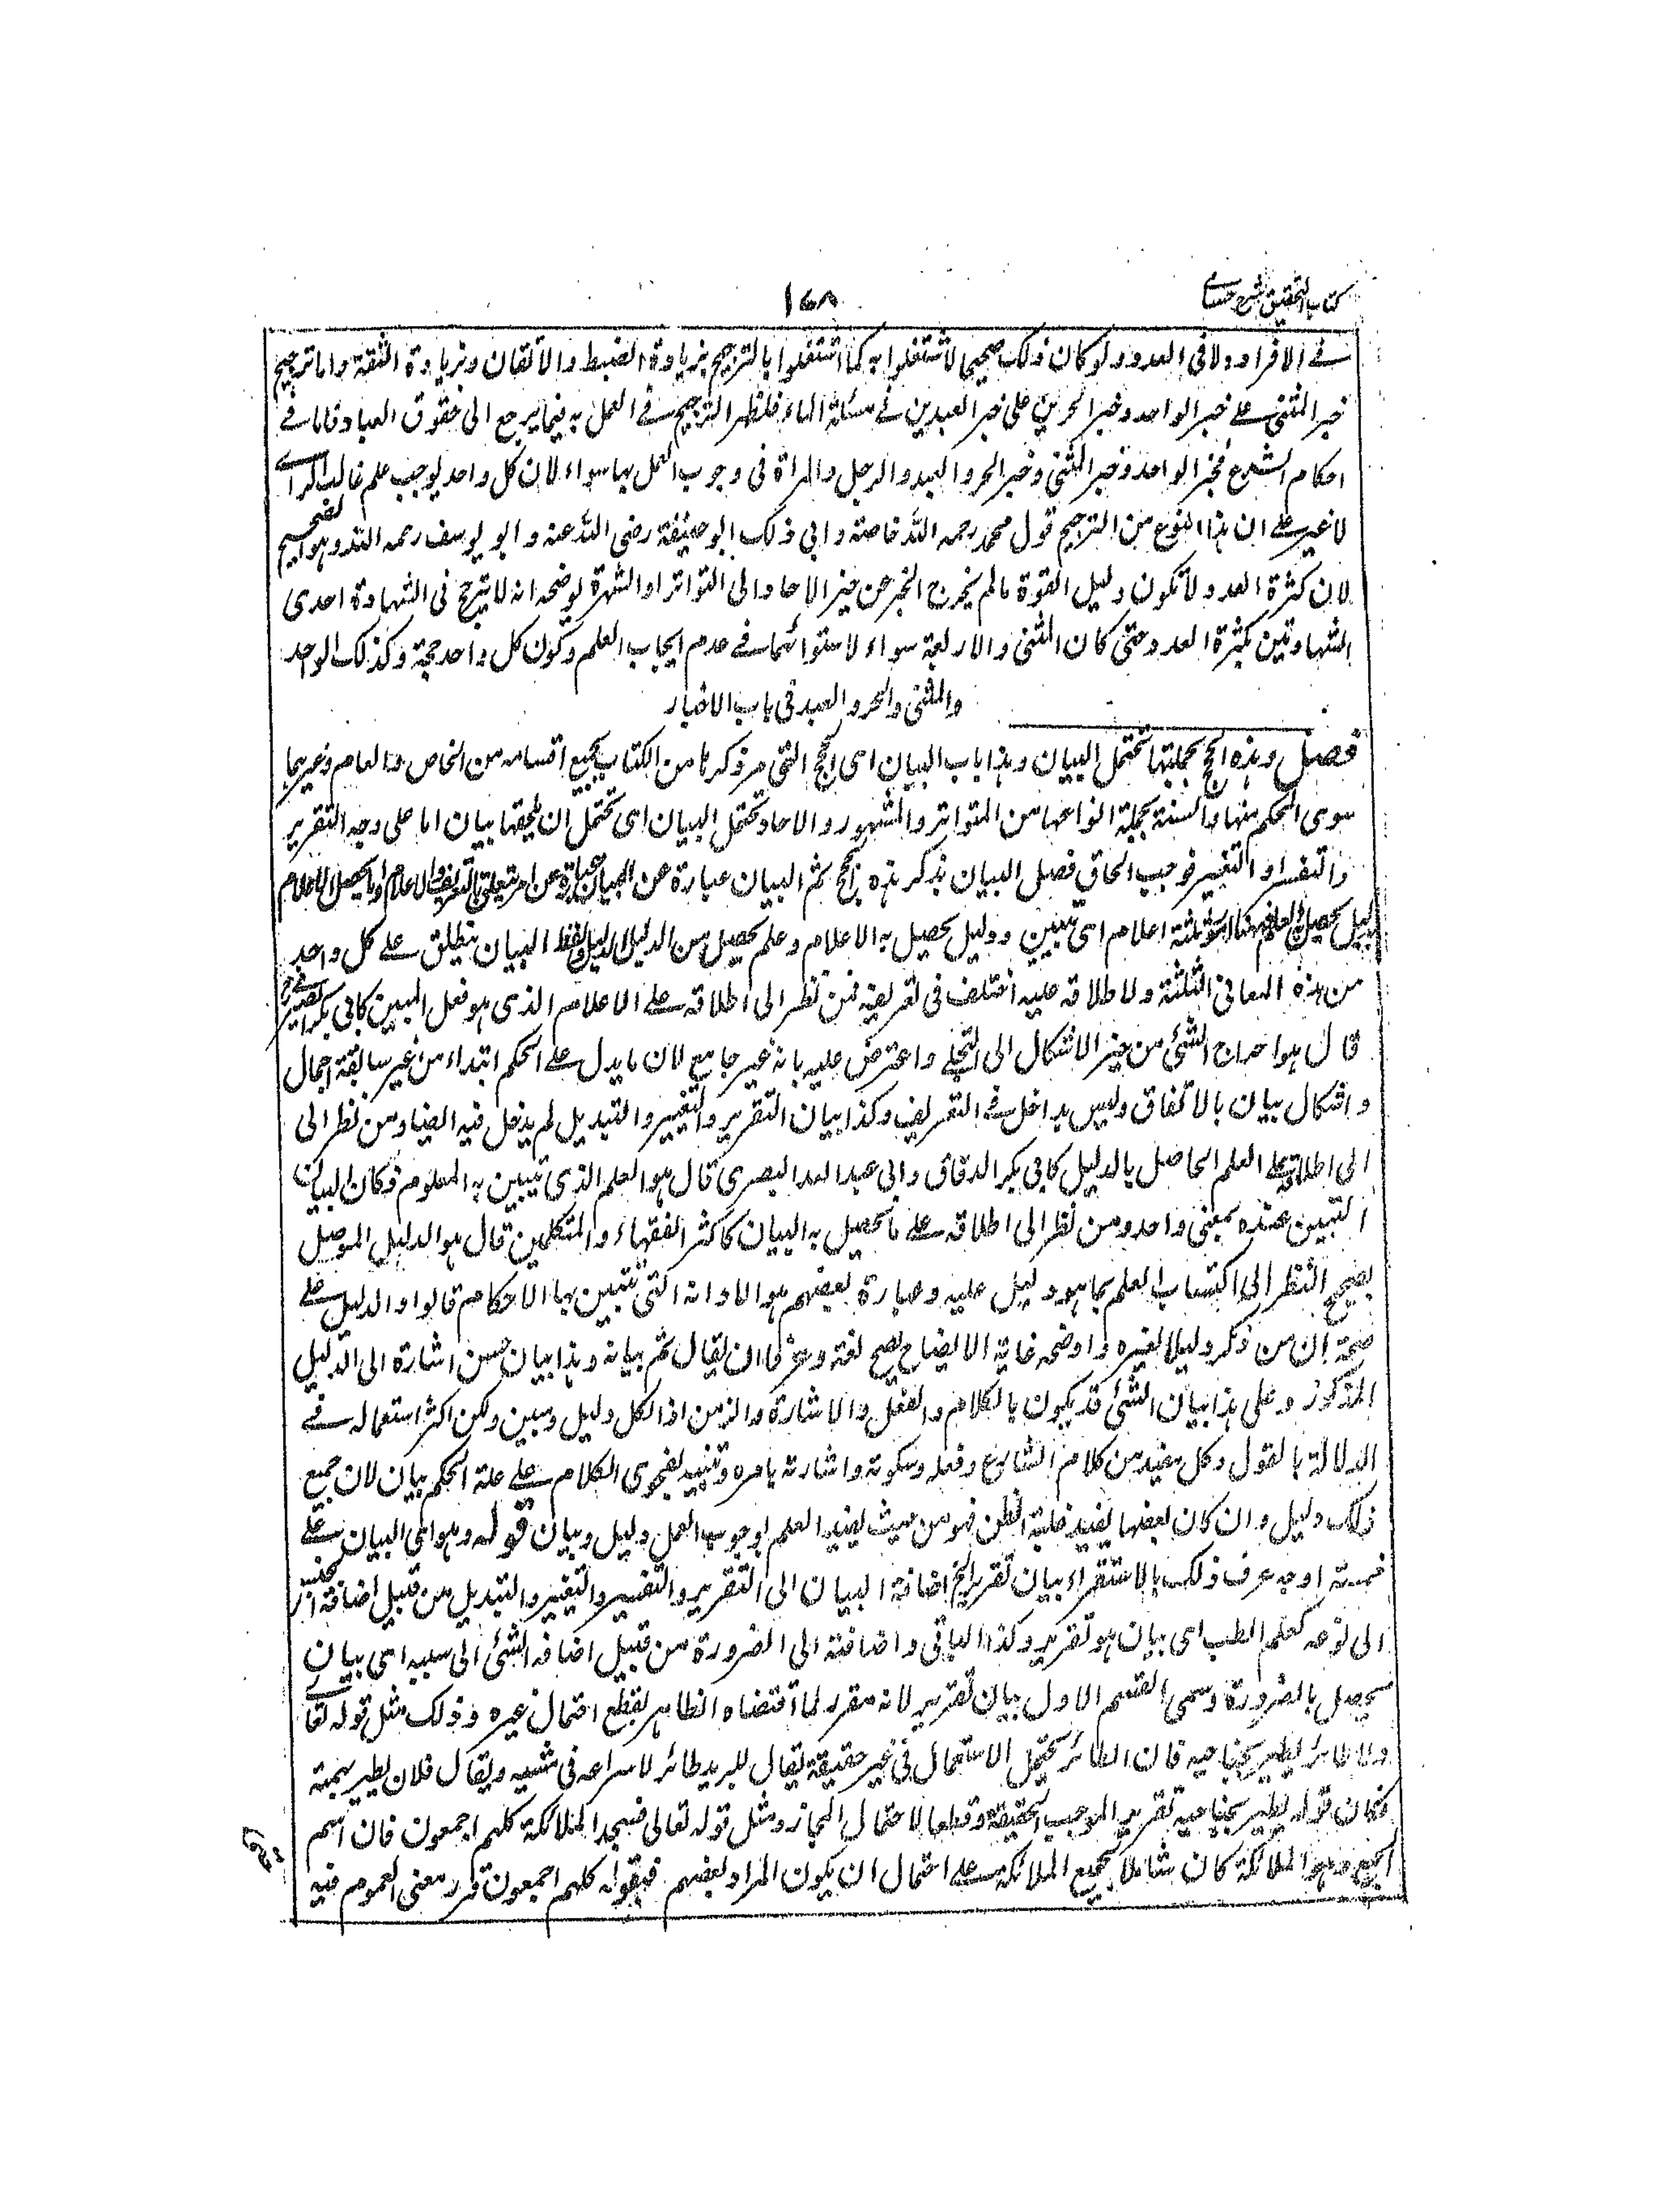 كتاب التحقيق شرح حسامى
١٦٨
فے الافراد ولا فى العدد ولو كان ذلك صحيحا لاشتغلوا به كما اشتغلوا بالترجيح بزيادة الضبط والاتقان وبزيادة الثقة واما ترجيح
خبر المثنى علے خبر الواحد وخبر الحرين على خبر العبدين فے مسئلة الماء فلظهر الترجيح فے العمل به فيما يرجع الى حقوق العباد فاما فے
احكام الشرع فخبر الواحد وخبر المثنى وخبر الحر والعبد والرجل والمراة فى وجوب العمل بها سواء لان كل واحد يوجب علم غالب الراے
لا غير علے ان هذا النوع من الترجيح قول محمد رحمه الله خاصة وابى ذلك ابو حنيفة رضى الله عنه وابو يوسف رحمه الله وهو الصحيح
لان كثرة العدد لا تكون دليل القوة ما لم يخرج الخبر عن حيز الاحاد الى التواتر او الشهرة يوضحه انه لا يترجح فى الشهادة احدى
الشهادتين بكثرة العدد حتى كان المثنى والاربعة سواء لاستوائهما فے عدم ايجاب العلم وكون كل واحد حجة وكذلك الواحد
والمثنى والحر والعبد فى باب الاخبار
فصل وهذه الحجج بجملتها تحتمل البيان وهذا باب البيان اى الحجج التى مر ذكرها من الكتاب بجميع اقسامه من الخاص والعام وغيرهما
سوى المحكم منها والسنة بجملة انواعها من المتواتر والمشهور والاحاد تحتمل البيان اى تحتمل ان يلحقها بيان اما على وجه التقرير
والتفسير او التغيير فوجب الحاق فصل البيان بذكر هذه الحجج ثم البيان عبارة عن امر يتعلق بالتعريف والاعلام وانما يحصل الاعلام
بدليل يحصل به العلم فههنا امور ثلثة اعلام اى تبيين ودليل يحصل به الاعلام وعلم يحصل من الدليل ولفظ البيان ينطلق علے كل واحد
من هذه المعانى الثلثة ولاطلاقه عليه اختلف فى تعريفه فمن نظر الى اطلاقه علے الاعلام الذى هو فعل المبين كابى بكر الصيرفى
قال هو اخراج الشئ من حيز الاشكال الى التجلے واعترض عليه بانه غير جامع لان ما يدل علے الحكم ابتداء من غير سابقة اجمال
واشكال بيان بالاتفاق وليس بداخل فے التعريف وكذا بيان التقرير والتغيير والتبديل لم يدخل فيه ايضا ومن نظر الى
الى اطلاقه علے العلم الحاصل بالدليل كابى بكر الدقاق وابى عبد الله البصرى قال هو العلم الذى يتبين به المعلوم فكان البيان
التبيين عنده بمعنى واحد ومن نظر الى اطلاقه علے ما يحصل به البيان كاكثر الفقهاء والمتكلمين قال هو الدليل الموصل
بصحيح النظر الى اكتساب العلم بما هو دليل عليه وعبارة بعضهم هو الاداة التى تتبين بها الاحكام قالوا والدليل علے
صحته ان من ذكر دليلا لغيره واوضحه غاية الايضاح يصح لغة وعرفا ان يقال ثم بيانه وهذا بيان حسن اشارة الى الدليل
المذكور وعلى هذا بيان الشئ قد يكون بالكلام والفعل والاشارة والرمز اذ الكل دليل ومبين ولكن اكثر استعماله فے
الدلالة بالقول وكل مفيد من كلام الشارع وفعله وسكوته واشارته بامره وتنبيه بفحوى الكلام علے علة الحكم بيان لان جميع
ذلك دليل وان كان بعضها يفيد غلبة الظن فهو من حيث يفيد العلم بوجوب العمل دليل وبيان قوله وهو اى البيان علے
خمسة اوجه عرف ذلك بالاستقراء بيان تقرير الخ اضافة البيان الى التقرير والتفسير والتغيير والتبديل من قبيل اضافة الجنس
الى نوعه كعلم الطب اى بيان هو تقرير وكذا الباقى واضافته الى الضرورة من قبيل اضافة الشئ الى سببه اى بيان
يحصل بالضرورة وسمى القسم الاول بيان تقرير لانه مقرر لما اقتضاه الظاهر بقطع احتمال غيره وذلك مثل قوله تعالے
ولا طائر يطير بجناحيه فان الطائر يحتمل الاستعمال فى غير حقيقة يقال للبريد طائر لاسراعه فى مشيه ويقال فلان يطير بهمته
فكان قوله يطير بجناحيه تقرير الموجب الحقيقة وقطعا لاحتمال المجاز ومثل قوله تعالى فسجد الملائكة كلهم اجمعون فان اسم
الجمع وهو الملائكة كان شاملا لجميع الملائكة علے احتمال ان يكون المراد بعضهم فبقوله كلهم اجمعون قرر معنى العموم فيه